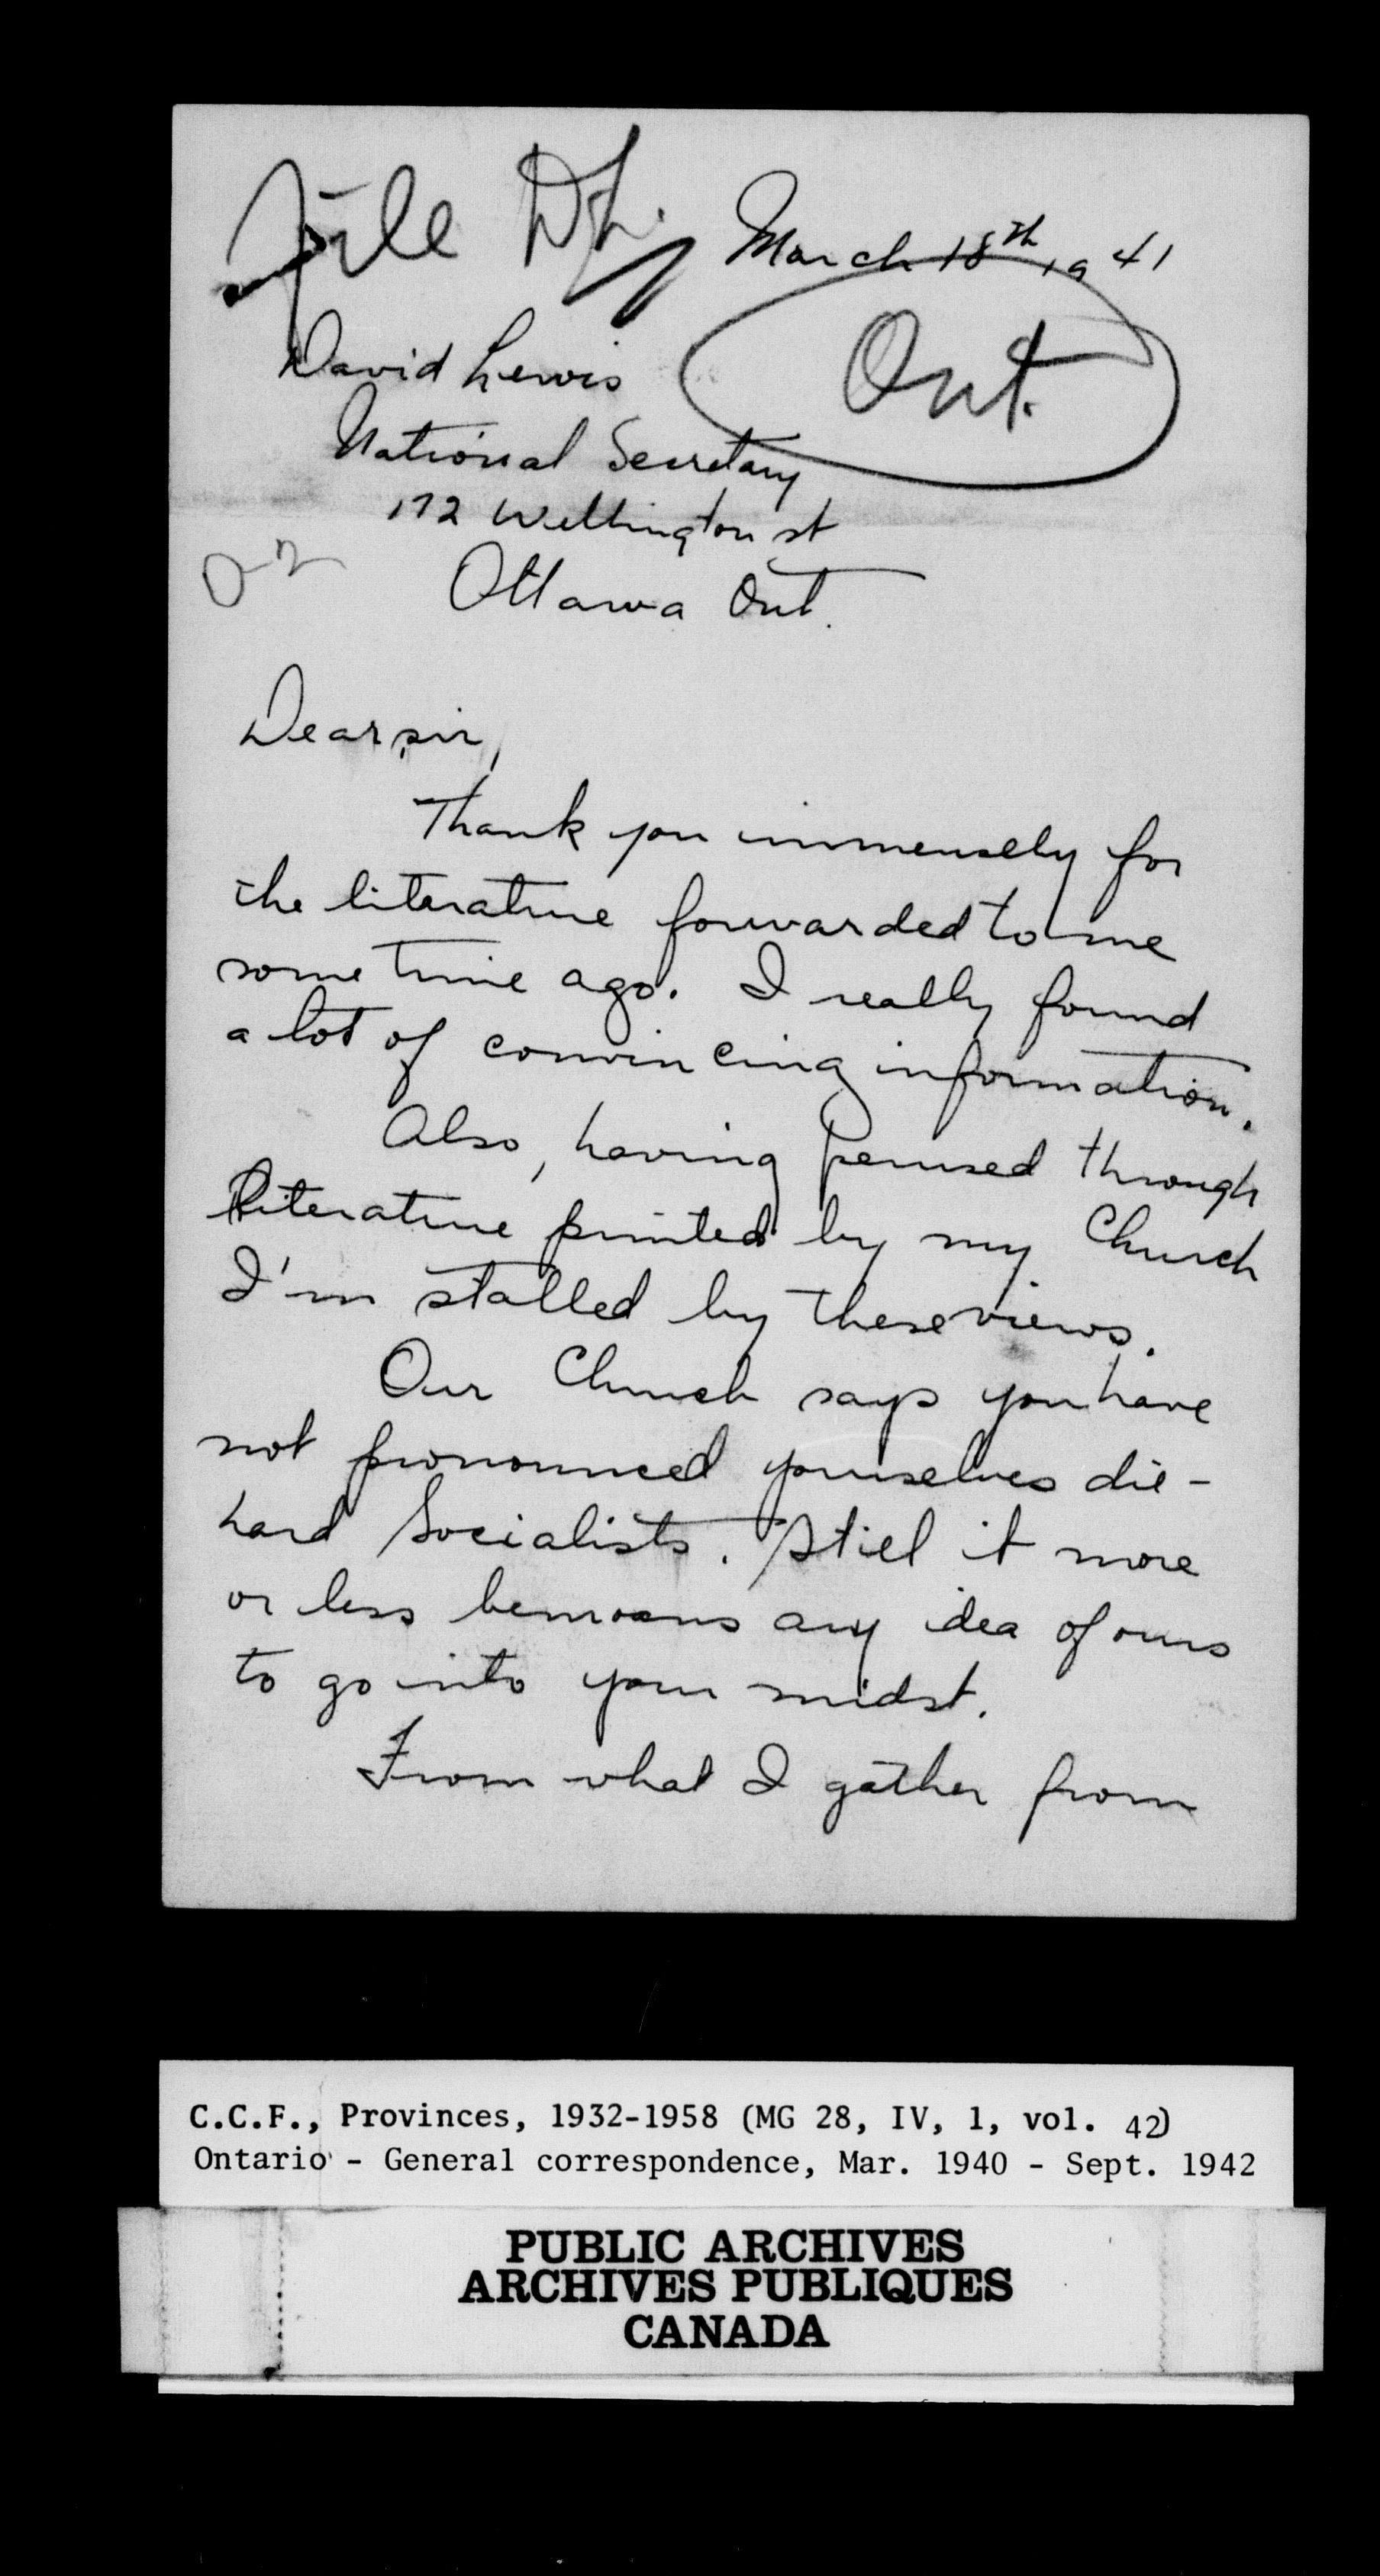 File DL.
March 18th 1941
Ont.
David Lewis
National Secretary
172 Wellington st
Ottawa Ont.
Dear sir,
Thank you immensely for
the literature forwarded to me
some time ago. I really found
a lot of convincing information.
Also, having perused through
literature printed by my Church
I'm stalled by these views.
Our Church says you have
not pronounced yourselves die-
hard Socialists. Still it more
or less bemoans any idea of ours
to go into your midst.
From what I gather from
C.C.F., Provinces, 1932-1958 (MG 28, IV, 1, vol. 42)
Ontario - General correspondence, Mar. 1940 - Sept. 1942
PUBLIC ARCHIVES
ARCHIVES PUBLIQUES
CANADA